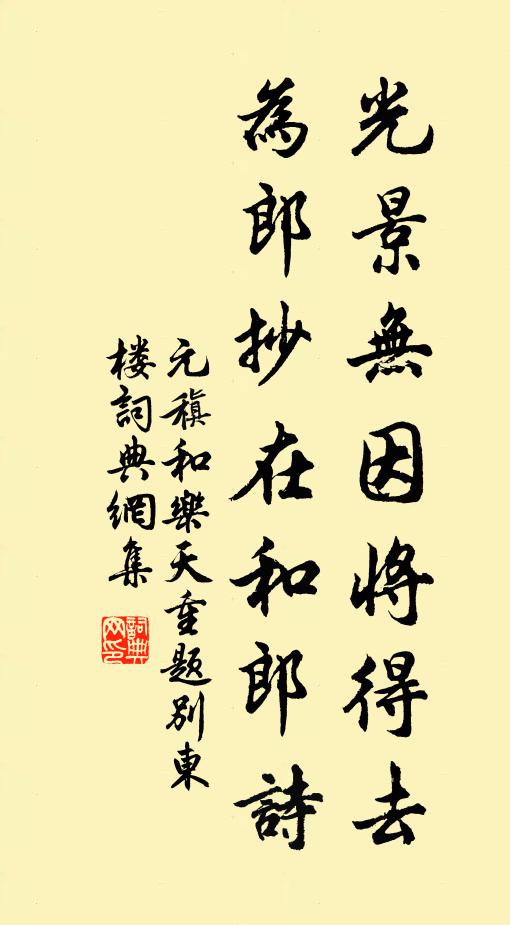 光景無因將得去
為郎抄在和郎詩
元稹和樂天重題別東
楼詞典網集
詞典網印